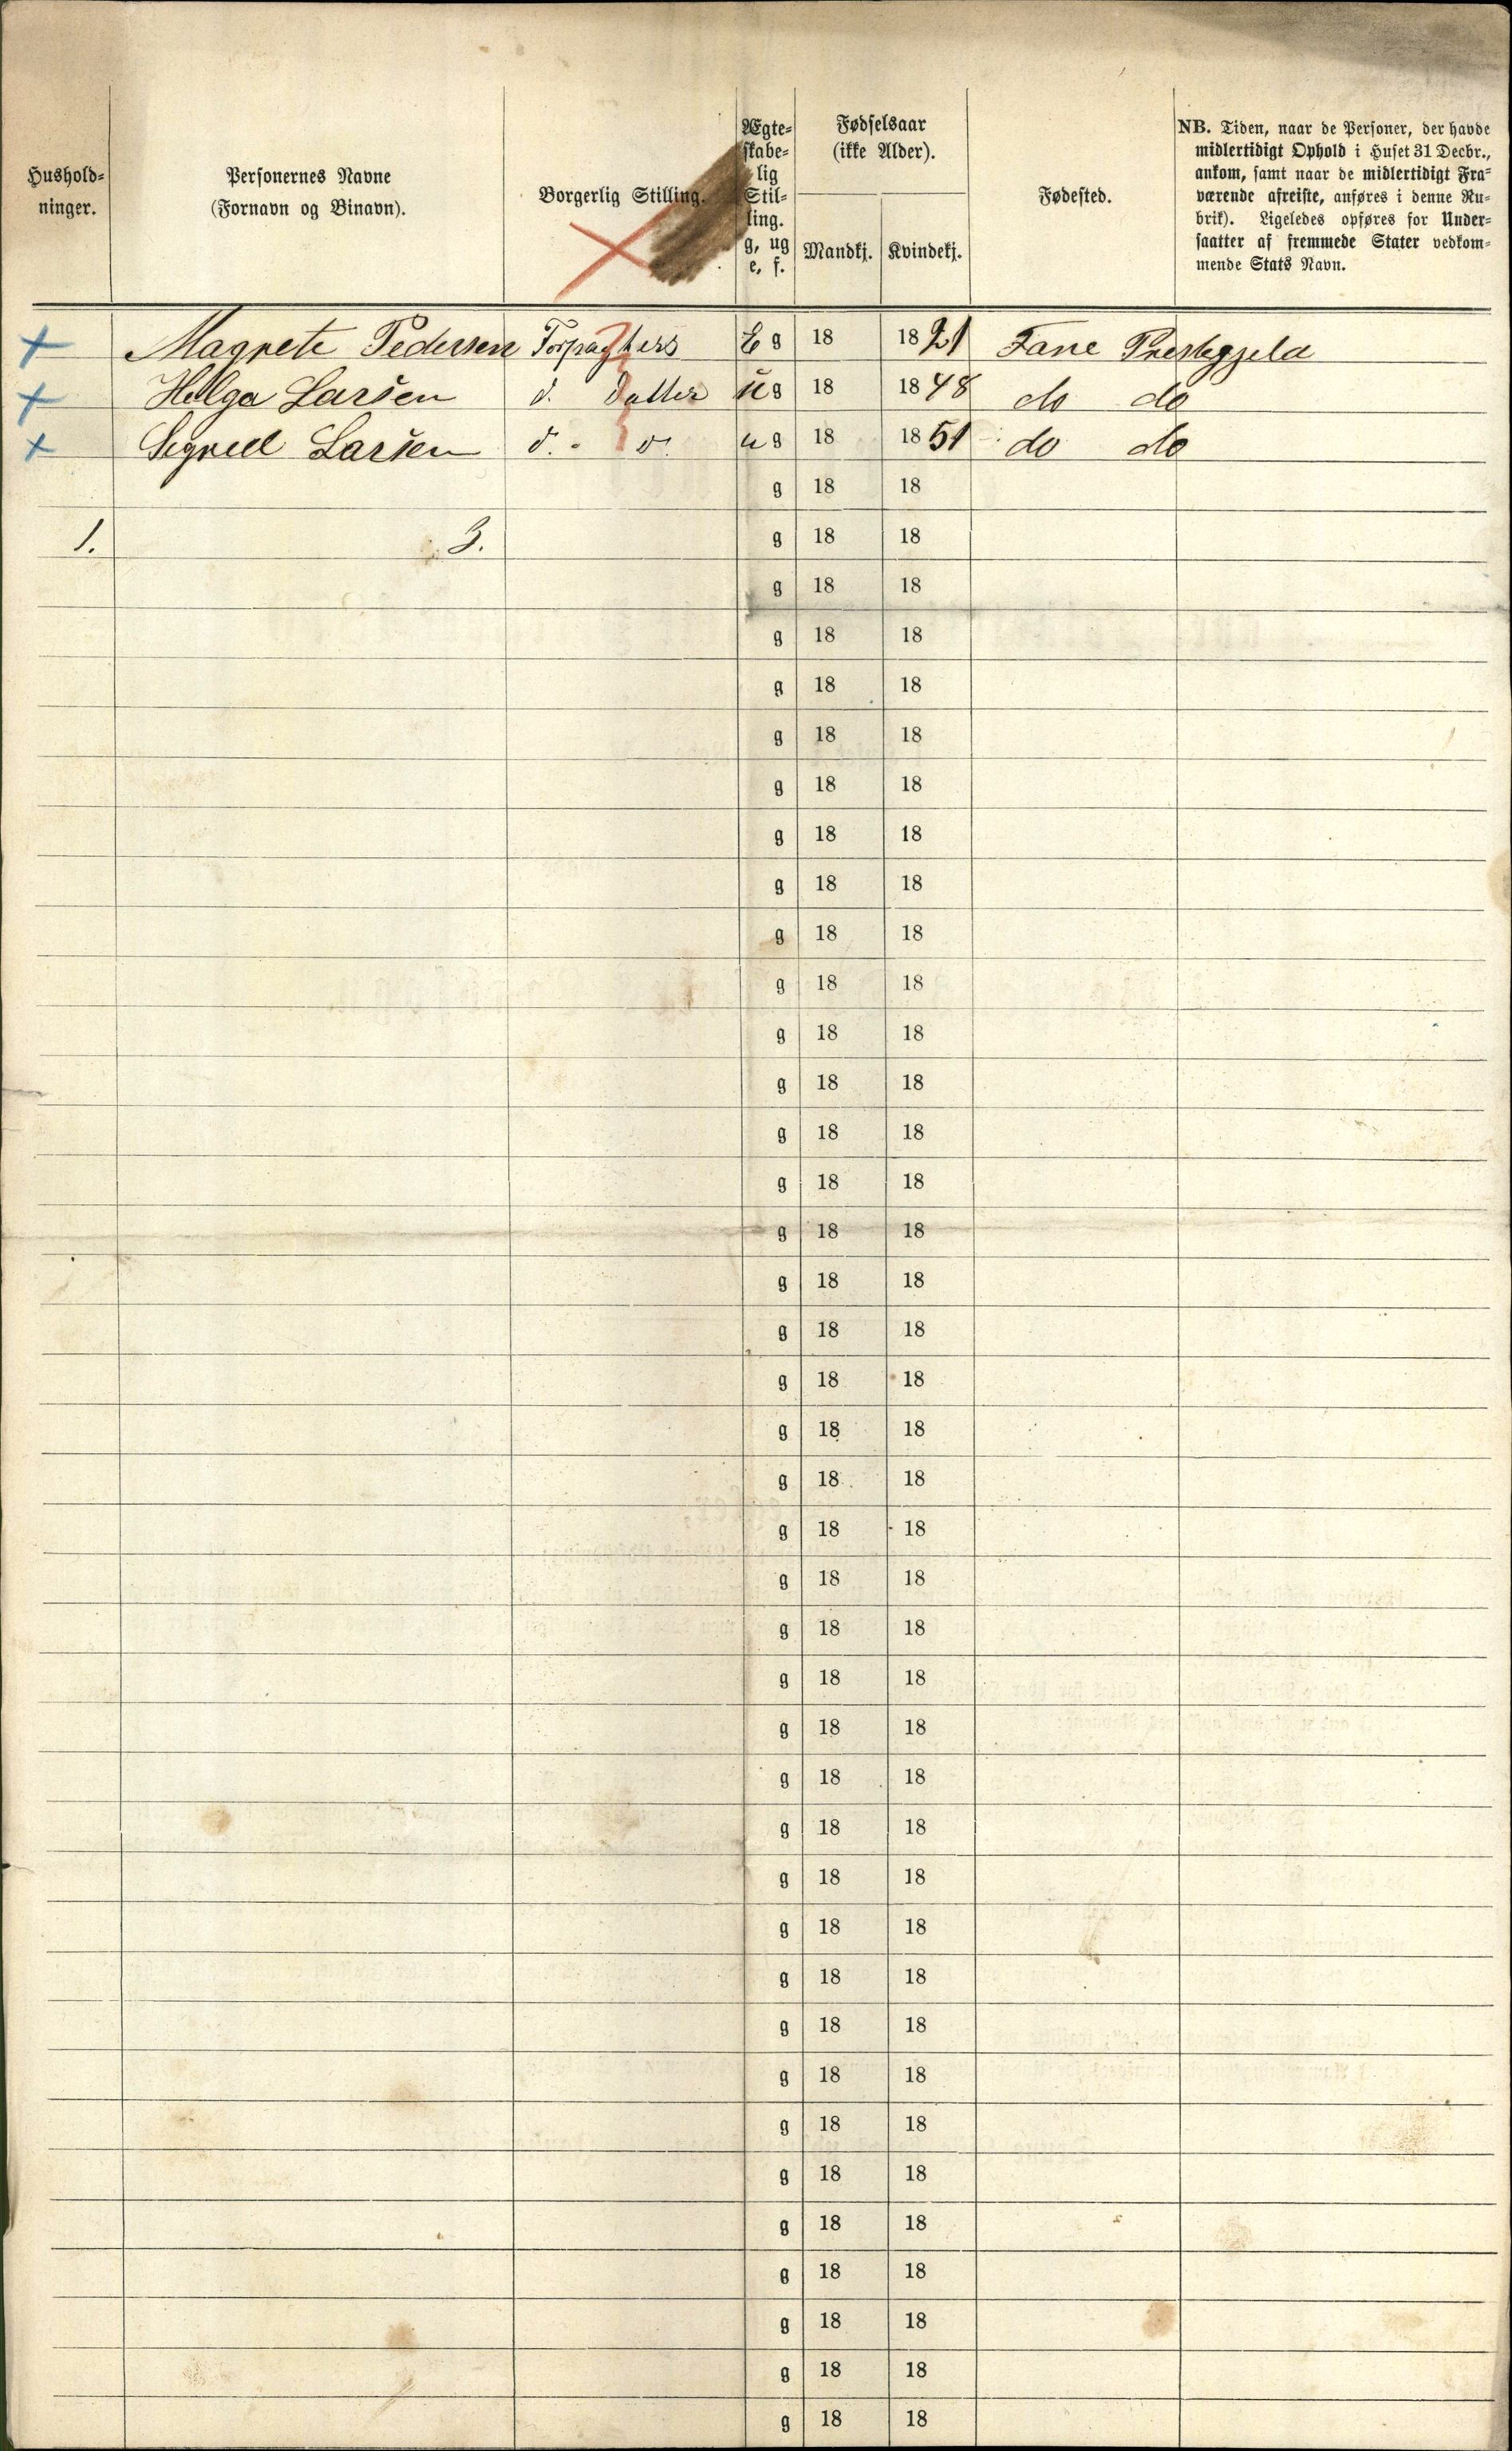 Hushold-
ninger.
Personernes Navne
(Fornavn og Binavn).
Borgerlig Stilling.
Ægte-
skabe-
lig
Stil-
ling.
g, ug
e, f.
Fødselsaar
(ikke Alder).
Mandkj. Kvindekj.
Fødested.
NB. Tiden, naar de Personer, der havde
midlertidigt Ophold i Huset 31 Decbr.,
ankom, samt naar de midlertidigt Fra-
værende afreiste, anføres i denne Ru-
brik). Ligeledes opføres for Under-
saatter af fremmede Stater vedkom-
mende Stats Navn.
Magrete Pedersen E g 18 1821 Fane Presteggeld
Helga Larsen d. Datter u g 18 1848 do do
Larsen d. - d. u g 18 1851 do do
g 18 18
1. 3. g 18 18
g 18 18
g 18 18
g 18 18
g 18 18
g 18 18
g 18 18
g 18 18
g 18 18
g 18 18
g 18 18
g 18 18
g 18 18
g 18 18
g 18 18
g 18 18
g 18 18
g 18 18
g 18 18
g 18 18
g 18 18
g 18 18
g 18 18
g 18 18
g 18 18
g 18 18
g 18 18
g 18 18
g 18 18
g 18 18
g 18 18
g 18 18
g 18 18
g 18 18
g 18 18
g 18 18
g 18 18
g 18 18
g 18 18